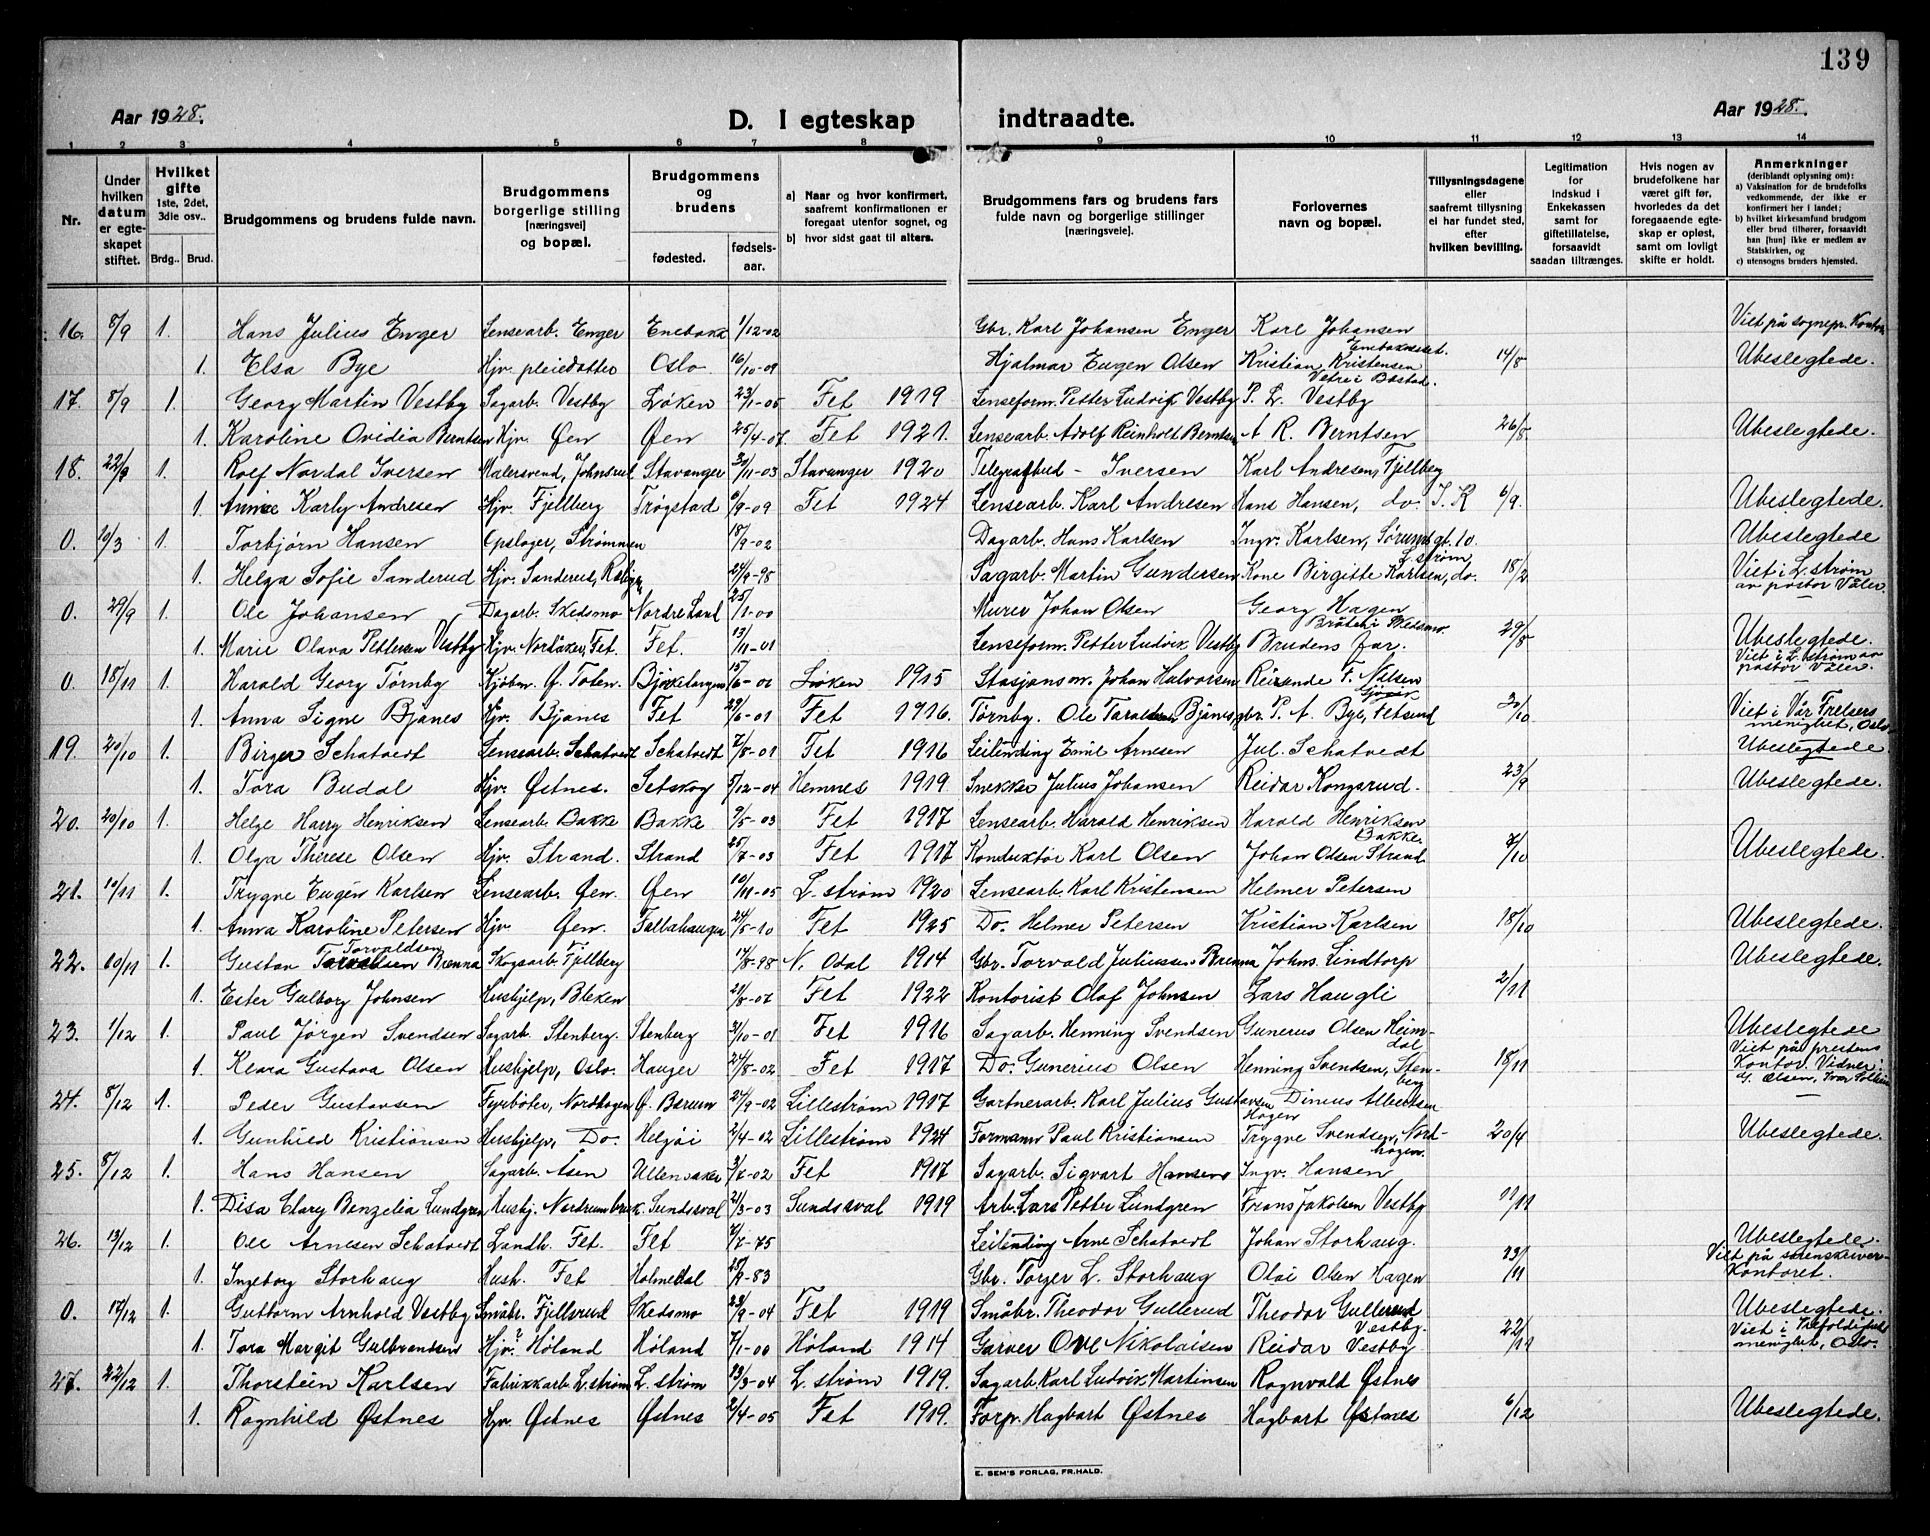 139
Aar 1928.
D. I egteskap indtraadte.
Aar 1928.
1 2 3 4 5 6 7 8 9 10 11 12 13 14
Nr.
Under hvilken datum er egteskapet stiftet.
Hvilket gifte 1ste, 2det, 3die osv..
Brdg.. Brud.
Brudgommens og brudens fulde navn.
Brudgommens borgerlige stilling [næringsvei] og bopæl.
Brudgommens og brudens
fødested. fødselsaar.
a) Naar og hvor konfirmert, saafremt konfirmationen er foregaat utenfor sognet, og
b) hvor sidst gaat til alters.
Brudgommens fars og brudens fars fulde navn og borgerlige stillinger [næringsveie].
Forlovernes navn og bopæl.
Tillysningsdagene eller saafremt tillysning ei har fundet sted, efter hvilken bevilling.
Legitimation for Indskud i Enkekassen samt for giftetillatelse, forsaavidt saadan tiltrænges.
Hvis nogen av brudefolkene har været gift før, hvorledes da det foregaaende egteskap er opløst, samt om lovligt skifte er holdt.
Anmerkninger (deriblandt oplysning om):
a) Vaksination for de brudefolks vedkommende, der ikke er konfirmert her i landet;
b) hvilket kirkesamfund brudgom eller brud tilhører, forsaavidt han [hun] ikke er medlem av Statskirken, og
c) utensogns bruders hjemsted.
16. 8/9 1. Hans Julius Enger Lensearb. Enger Enebakk 1/12-02 Gbr. Karl Johansen Enger Karl Johansen Enebakneset. Viet på sognepr. Kontor
1. Elsa Bye Hjv. pleiedatter Oslo 16/10-09 Hjalmar Eugen Olsen Kristian Kristensen 14/8 Ubeslegtede.
17. 8/9 1. Georg Martin Vestby Sagarb. Vestby Løken 23/1-05 Fet 1919 Lenseform. Petter Ludvik Vestby P. L. Vestby
1. Karoline Ovidia Berntsen Hjv. Øen Øen 25/4-07 Fet 1921. Lensearb. Adolf Reinholt Berntsen A. R. Berntsen 26/8 Ubeslegtede.
18. 22/9 1. Rolf Nordal Iversen Malersvend, Johnsrud Stavanger 30/11-03 Stavanger 1920 Telegrafbud - Iversen Karl Andresen, Fjellberg
1. Annie Karly Andresen Hjv. Fjellberg Trøgstad 6/9-09 Fet 1924 Lensearb. Karl Andresen Hans Hansen, do. I. R 6/9. Ubeslegtede.
0. 10/3 1. Torbjørn Hansen Opslager, Strømmen 18/9-02 Dagarb. Hans Karlsen Ingv. Karlsen, Sørumsgt. 10. L.strøm Ubeslegtede
1. Helga Sofie Sanderud Hjv. Sanderud, 24/9-98 Sagarb. Martin Gundersen Kone Birgitte Karlsen, do. 18/2 Viet i L.strøm av pastor Våler.
0. 29/9 1. Ole Johansen Dagarb. Skedsmo Nordre Land 25/1-00 Murer Johan Olsen Georg Hagen Bråten i Skedsmo.
1. Marie Olava Pettersen Vestby Hjv. Nordåker, Fet. Fet. 13/11-01 Lenseform. Petter Ludvik Vestby Brudens far. 29/8 Ubeslegtede. Viet i L.strøm av pastor Våler.
0. 18/11 1. Harald Georg Tørnby Kjøbm. Ø. Toten. Bjørkelangen 15/6-01 Løken 1915 Stasjonsm. Johan Halvorsen Reisende F. Nilsen Gjøvik
1. Anna Signe Bjanes Hjv. Bjanes Fet 29/6-01 Fet 1916. Tørnby. Ole Taraldsen Bjånes, gbr. P. A. Bye, Fetsund 30/10 Viet i Vår Frelsers menighet, Oslo.
19. 20/10 1. Birger Schatvedt Lensearb. Schatvedt Schatvedt 7/8-01 Fet 1916 Leilending Emil Arnesen Jul. Schatvedt Ubeslegtede
1. Tora Budal Hjv. Østnes. Setskog 5/12-04 Hemnes 1919. Snekker Julius Johansen Reidar Kongsrud. 23/9 Ubeslegtede.
20. 20/10 1. Helge Harry Henriksen Lensearb. Bakke Bakke 9/5-03 Fet 1917 Lensearb. Harald Henriksen Harald Henriksen Bakke.
1. Olga Therese Olsen Hjv. Strand. Strand 25/7-03 Fet 1917 Konduktør Karl Olsen Johan Olsen Strand 7/10 Ubeslegtede.
21. 10/11 1. Trygve Eugén Karlsen Lensearb. Øen. Øen 10/11-05 L. strøm 1920 Lensearb. Karl Kristensen Helmer Petersen
1. Anna Karoline Petersen Hjv. Øen. Falbahaugen 24/5-10 Fet 1925 Do. Helmer Petersen Kristian Karlsen 18/10 Ubeslegtede.
22. 10/11 1. Gustav Torvaldsen Brenna Skogsarb. Fjellberg 17/8-98 N. Odal 1914 Gbr. Torvald Juliussen Brenna Johs. Lindtorp Ubeslegtede.
1. Ester Gulborg Johnsen Hushjelp, Bleken 21/8-07 Fet 1922 Kontorist Olaf Johnsen Lars Haugli 2/11
23. 1/12 1. Paul Jørgen Svendsen Sagarb. Stenberg. Stenberg 21/10-01 Fet 1916 Sagarb. Henning Svendsen Gunerus Olsen Heimdal Ubeslegtede
1. Klara Gustava Olsen Hushjelp, Oslo. Hauger 24/8-02 Fet 1917 Do. Gunerius Olsen Henning Svendsen, Stenberg 18/11 Viet på prestens Kontor. Vidner: G. Olsen,
24. 8/12 1. Peder Gustavsen Fyrbøter, Nordhagen Ø. Bærum 24/9-02 Lillestrøm 1917 Gartnerarb. Karl Julius Gustavsen Dinius Albertsen Hagen
1. Gunhild Kristiansen Hushjelp, Do. Helgøi 2/4-02 Lillestrøm 1924 Formann Paul Kristiansen Trygve Svendsen, Nordhagen. 20/4 Ubeslegtede.
25. 8/12 1. Hans Hansen Sagarb. Åsen Ullensaker 3/7-02 Fet 1917 Sagarb. Sigvart Hansens Ingv. Hansen
1. Disa Clary Benzelia Lundgren Hushj. Nordrumbruk. Sundsval 21/3-03 Sundsval 1919 Arb. Lars Petter Lundgren Frans Jakobsen Vestby 11/11
26. 13/12 1. Ole Arnesen Schatvedt Landh. Fet. Fet 7/7-75 Leilending Arne Schatvedt Johan Storhaug. Ubeslegtede.
1. Ingeborg Storhaug Hush. Fet Holmedal 25/9-83 Gbr. Torger L. Storhaug Olai Olsen Hagen 23/11 Viet på sorenskriverkontoret.
0. 17/12 1. Guttorm Arnhold Vestby Småbr. Fjellsrud Skedsmo 23/9-04 Fet 1919 Småbr. Theodor Gullerud Theodor Gullerud Vestby. Ubeslegtede.
1. Tora Margit Gulbrandsen Hjv. Høland Høland 7/1-00 Høland 1914 Garver Ove Nikolaisen Reidar Vestby 22/11 Viet i Trefoldighets menighet, Oslo.
27. 22/12 1. Thorstein Karlsen Fabrikkarb. L.strøm L. strøm 23/3-04 L. strøm 1919. Sagarb. Karl Ludvik Martinsen Ragnvald Østnes
1. Ragnhild Østnes Hjv. Østnes Østnes 2/4-05 Fet 1919. Forp. Hagbart Østnes Hagbart Østnes 6/12 Ubeslegtede.
E. SEM'S FORLAG, FR.HALD.